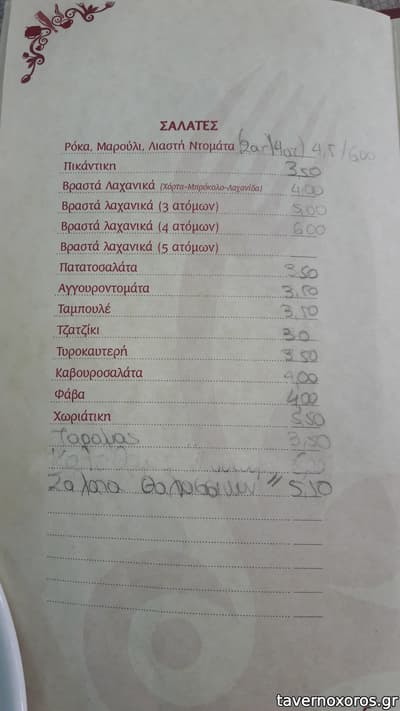 ΣΑΛΑΤΕΣ
Ρόκα, Μαρούλι, Λιαστή Ντομάτα (2ατ/4ατ) 4,5/6,00
Πικάντικη 3,50
Βραστά Λαχανικά (Χόρτα-Μπρόκολο-Λαχανίδα) 4,00
Βραστά λαχανικά (3 ατόμων) 5,00
Βραστά λαχανικά (4 ατόμων) 6,00
Βραστά λαχανικά (5 ατόμων)
Πατατοσαλάτα 3,50
Αγγουροντομάτα 3,50
Ταμπουλέ 3,50
Τζατζίκι 3,0
Τυροκαυτερή 3,50
Καβουροσαλάτα 4,00
Φάβα 4,00
Χωριάτικη 5,50
Ταραμάς 3,50
Σαλάτα Θαλασσινών 5,50
tavernoxoros.gr